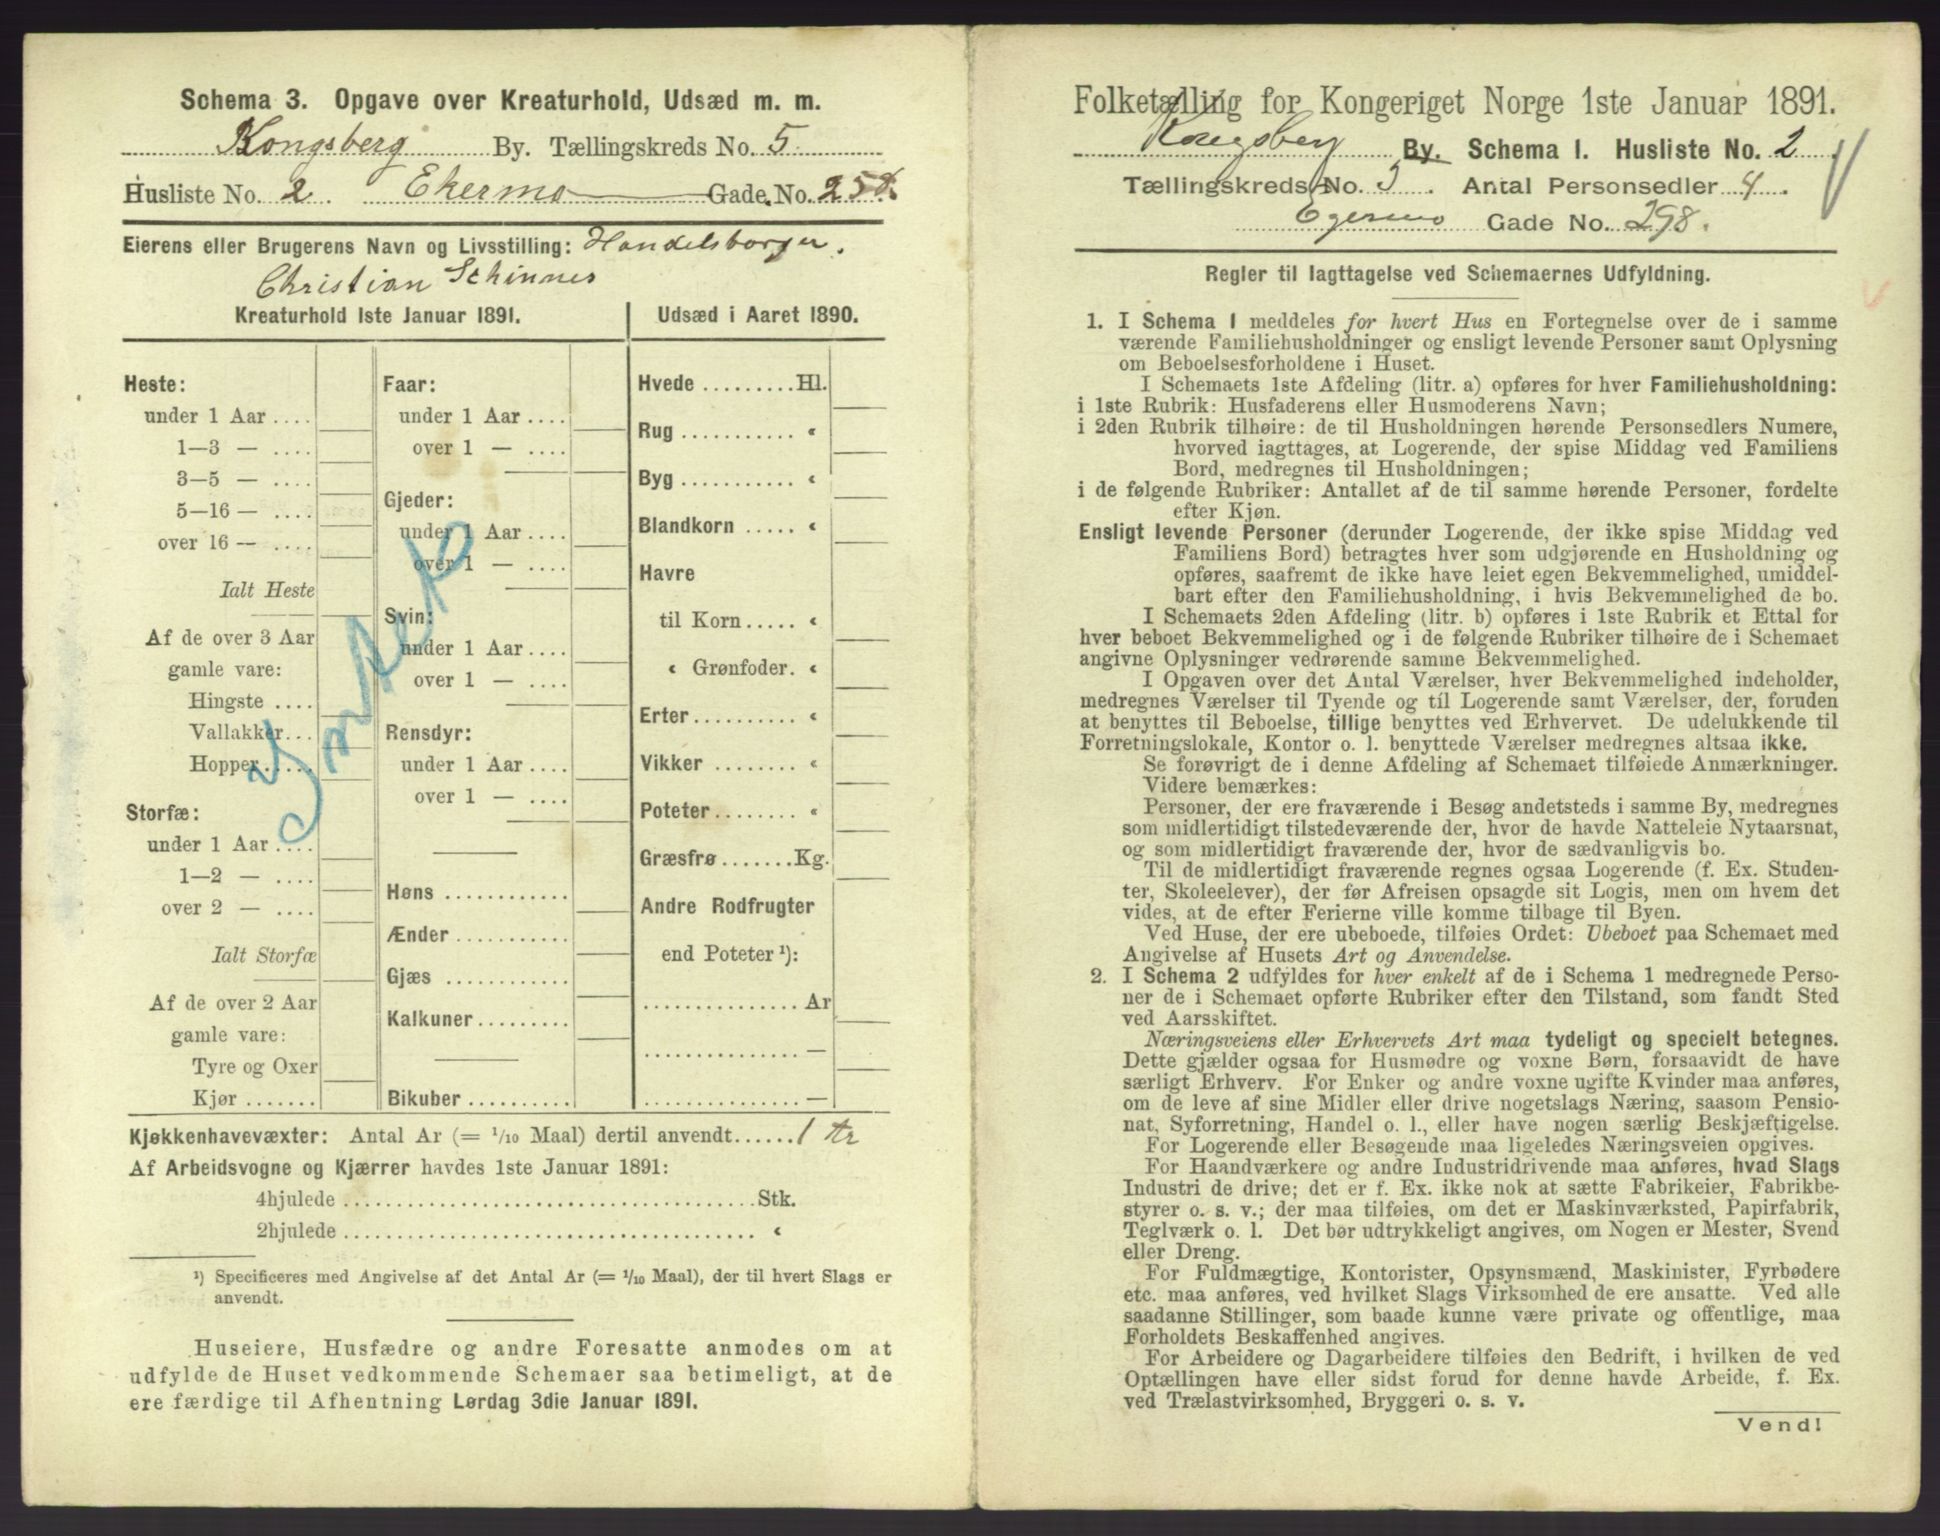 Schema 3. Opgave over Kreaturhold, Udsæd m. m.
Kongsberg By. Tællingskreds No. 5
Husliste No. 2 Ekermo Gade. No.
Eierens eller Brugerens Navn og Livsstilling: Handelsborger.
Christian Schinnes
Kreaturhold 1ste Januar 1891.
Heste:
under 1 Aar ....
1—3 — ....
3—5 — ....
5—16 — ....
over 16 — ....
Ialt Heste
Af de over 3 Aar
gamle vare:
Hingste ....
Vallakker...
Hopper.....
Storfæ:
under 1 Aar ....
1—2 — ....
over 2 — ....
Ialt Storfæ
Af de over 2 Aar
gamle vare:
Tyre og Oxer
Kjør .......
Faar:
under 1 Aar ....
over 1 — ....
Gjeder:
under 1 Aar ....
over 1 — ....
Svin:
under 1 Aar ....
over 1 — ....
Rensdyr:
under 1 Aar ....
over 1 — ....
Høns ............
Ænder...........
Gjæs ............
Kalkuner.........
Bikuber ..........
Udsæd i Aaret 1890.
Hvede .........Hl.
Rug ........... «
Byg ........... «
Blandkorn ..... «
Havre
til Korn..... «
« Grønfoder. «
Erter.......... «
Vikker ........ «
Poteter........ «
Græsfrø.......Kg.
Andre Rodfrugter
end Poteter ¹):
................ Ar
................ —
................ —
Kjøkkenhavevæxter: Antal Ar (= 1/10 Maal) dertil anvendt...... 1 Ar
Af Arbeidsvogne og Kjærrer havdes 1ste Januar 1891:
4hjulede ........................................Stk.
2hjulede ........................................ «
¹) Specificeres med Angivelse af det Antal Ar (= 1/10 Maal), der til hvert Slags er
anvendt.
Huseiere, Husfædre og andre Foresatte anmodes om at
udfylde de Huset vedkommende Schemaer saa betimeligt, at de
ere færdige til Afhentning Lørdag 3die Januar 1891.
Folketælling for Kongeriget Norge 1ste Januar 1891.
Kongsberg By. Schema I. Husliste No. 2
Tællingskreds No. 5. Antal Personsedler 4.
Egermo Gade No. 298.
Regler til Iagttagelse ved Schemaernes Udfyldning.
1. I Schema I meddeles for hvert Hus en Fortegnelse over de i samme
værende Familiehusholdninger og ensligt levende Personer samt Oplysning
om Beboelsesforholdene i Huset.
I Schemaets 1ste Afdeling (litr. a) opføres for hver Familiehusholdning:
i 1ste Rubrik: Husfaderens eller Husmoderens Navn;
i 2den Rubrik tilhøire: de til Husholdningen hørende Personsedlers Numere,
hvorved iagttages, at Logerende, der spise Middag ved Familiens
Bord, medregnes til Husholdningen;
i de følgende Rubriker: Antallet af de til samme hørende Personer, fordelte
efter Kjøn.
Ensligt levende Personer (derunder Logerende, der ikke spise Middag ved
Familiens Bord) betragtes hver som udgjørende en Husholdning og
opføres, saafremt de ikke have leiet egen Bekvemmelighed, umiddel-
bart efter den Familiehusholdning, i hvis Bekvemmelighed de bo.
I Schemaets 2den Afdeling (litr. b) opføres i 1ste Rubrik et Ettal for
hver beboet Bekvemmelighed og i de følgende Rubriker tilhøire de i Schemaet
angivne Oplysninger vedrørende samme Bekvemmelighed.
I Opgaven over det Antal Værelser, hver Bekvemmelighed indeholder,
medregnes Værelser til Tyende og til Logerende samt Værelser, der, foruden
at benyttes til Beboelse, tillige benyttes ved Erhvervet. De udelukkende til
Forretningslokale, Kontor o. l. benyttede Værelser medregnes altsaa ikke.
Se forøvrigt de i denne Afdeling af Schemaet tilføiede Anmærkninger.
Videre bemærkes:
Personer, der ere fraværende i Besøg andetsteds i samme By, medregnes
som midlertidigt tilstedeværende der, hvor de havde Natteleie Nytaarsnat,
og som midlertidigt fraværende der, hvor de sædvanligvis bo.
Til de midlertidigt fraværende regnes ogsaa Logerende (f. Ex. Studen-
ter, Skoleelever), der før Afreisen opsagde sit Logis, men om hvem det
vides, at de efter Ferierne ville komme tilbage til Byen.
Ved Huse, der ere ubeboede, tilføies Ordet: Ubeboet paa Schemaet med
Angivelse af Husets Art og Anvendelse.
2. I Schema 2 udfyldes for hver enkelt af de i Schema 1 medregnede Perso-
ner de i Schemaet opførte Rubriker efter den Tilstand, som fandt Sted
ved Aarsskiftet.
Næringsveiens eller Erhvervets Art maa tydeligt og specielt betegnes.
Dette gjælder ogsaa for Husmødre og voxne Børn, forsaavidt de have
særligt Erhverv. For Enker og andre voxne ugifte Kvinder maa anføres,
om de leve af sine Midler eller drive nogetslags Næring, saasom Pensio-
nat, Syforretning, Handel o. l., eller have nogen særlig Beskjæftigelse.
For Logerende eller Besøgende maa ligeledes Næringsveien opgives.
For Haandværkere og andre Industridrivende maa anføres, hvad Slags
Industri de drive; det er f. Ex. ikke nok at sætte Fabrikeier, Fabrikbe-
styrer o. s. v.; der maa tilføies, om det er Maskinværksted, Papirfabrik,
Teglværk o. l. Det bør udtrykkeligt angives, om Nogen er Mester, Svend
eller Dreng.
For Fuldmægtige, Kontorister, Opsynsmænd, Maskinister, Fyrbødere
etc. maa anføres, ved hvilket Slags Virksomhed de ere ansatte. Ved alle
saadanne Stillinger, som baade kunne være private og offentlige, maa
Forholdets Beskaffenhed angives.
For Arbeidere og Dagarbeidere tilføies den Bedrift, i hvilken de ved
Optællingen have eller sidst forud for denne havde Arbeide, f. Ex.
ved Trælastvirksomhed, Bryggeri o. s. v.
Vend!